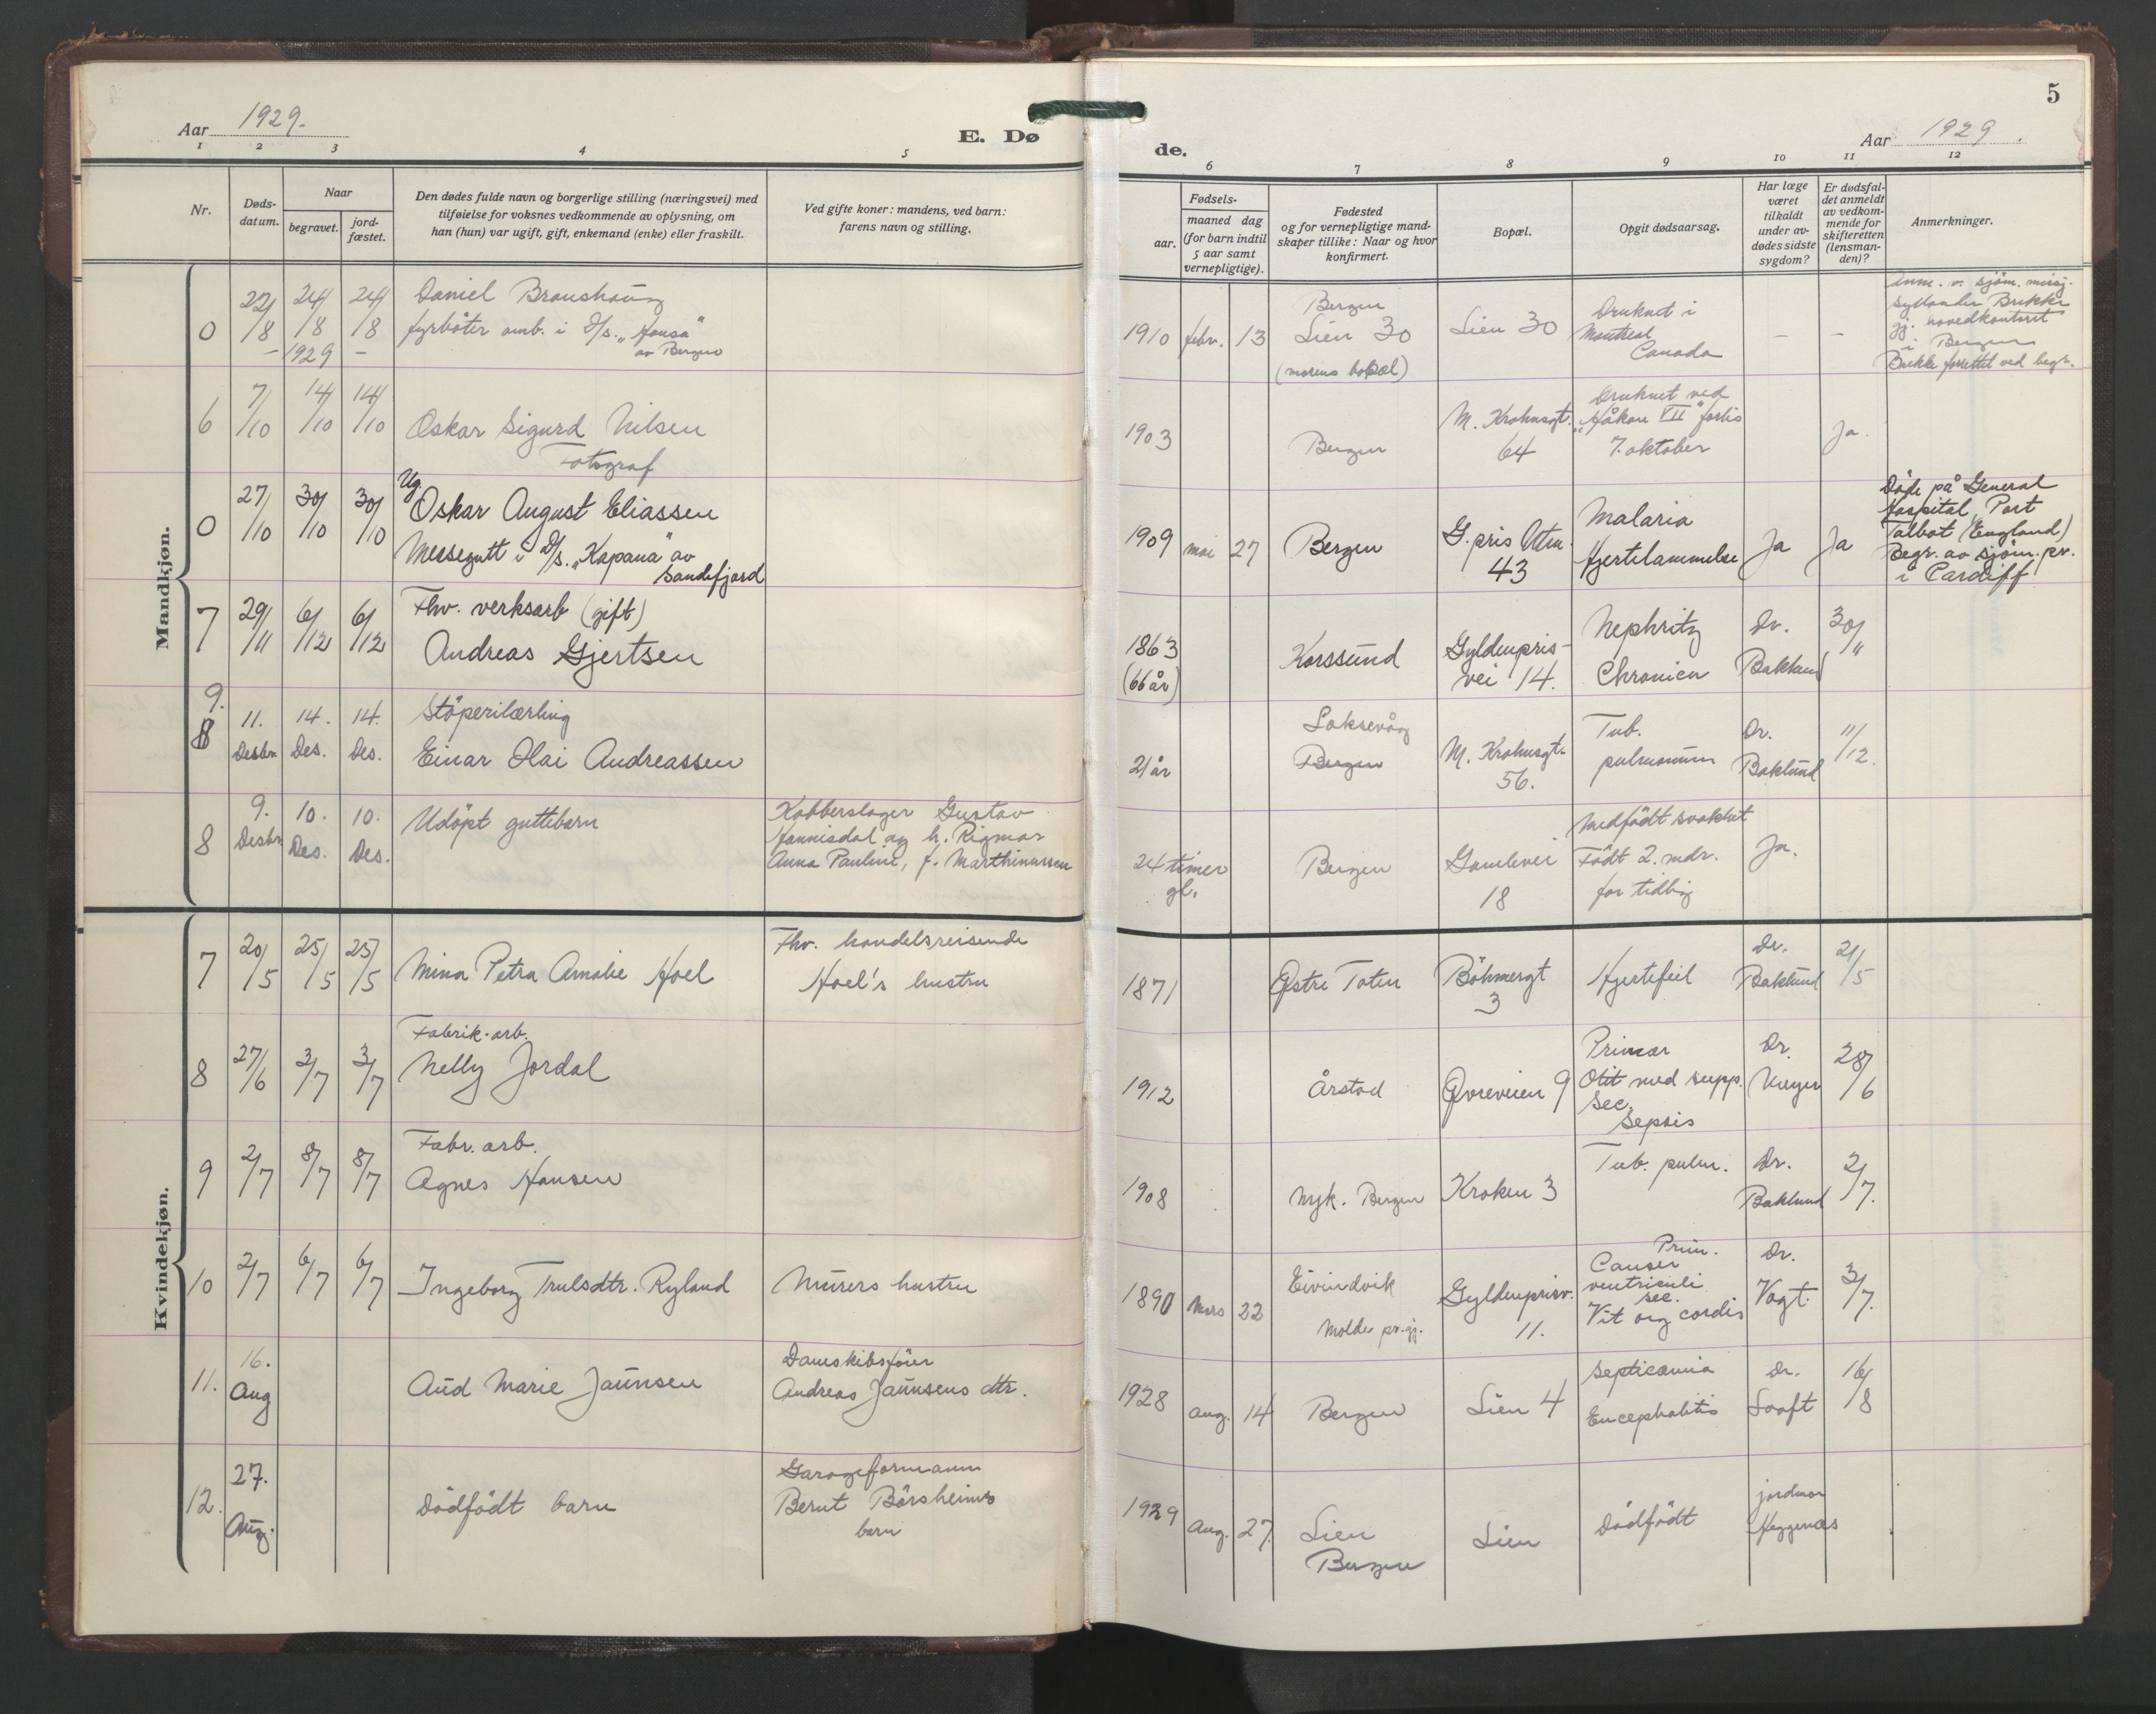 Aar 1929.
E. Dø
1 2 3 4 5
Nr.
Døds-
datum.
Naar
begravet.
jord-
fæstet.
Den dødes fulde navn og borgerlige stilling (næringsvei) med
tilføielse for voksnes vedkommende av oplysning, om
han (hun) var ugift, gift, enkemand (enke) eller fraskilt.
Ved gifte koner: mandens, ved barn:
farens navn og stilling.
5
de.
Aar 1929.
6 7 8 9 10 11 12
Fødsels-
aar.
maaned dag
(for barn indtil
5 aar samt
vernepligtige).
Fødested
og for vernepligtige mand-
skaper tillike: Naar og hvor
konfirmert.
Bopæl.
Opgit dødsaarsag.
Har læge
været
tilkaldt
under av-
dødes sidste
sygdom?
Er dødsfal-
det anmeldt
av vedkom-
mende for
skifteretten
(lensman-
den)?
Anmerkninger.
Mandkjøn.
0 22/8 24/8 24/8
– 1929 –
Daniel
fyrbøter omb. i D/s. „Hansa"
av Bergen
1910 febr. 13
Bergen
Lien 30
(morens bopæl)
Lien 30
Druknet i
Montreal
Canada
– –
Anm. v. sjøm. misj.
Brekke
gj. hovedkontoret
i Bergen
Brekke forrettet ved begr.
6 7/10 14/10 14/10
Oskar Sigurd Nilsen
Fotograf
1903
Bergen
M. Krohnsgt.
64
Druknet ved
„Håkon VII" forlis
7. oktober
Ja.
0 27/10 30/10 30/10
Ug.
Oskar August Eliassen
Messegutt i D/s. „Kapana" av
Sandefjord
1909 mai 27
Bergen
G. pris Utm.
43
Malaria
Hjertelammelse
Ja
Ja
Døde på General
Hospital, Port
Talbot (England)
Begr. av sjøm. pr.
i Cardiff
7 29/11 6/12 6/12
Fhv. verksarb (gift)
Andreas Gjertsen
1863
(66 år)
Korssund
Gyldenpris-
vei 14.
Nephritz
Chronica
Dr.
Baklund
30/11
9.
8 11. Desbr. 14. Des. 14. Des.
Støperilærling
Einar Olai Andreassen
21 år
Laksevåg
Bergen
M. Krohnsgt.
56.
Tub.
pulmonum
Dr.
Baklund
11/12.
8 9. Desbr. 10. Des. 10. Des.
Udøpt guttebarn
Kobberslager Gustav
Hannisdal og h. Rigmor
Anna Pauline, f. Marthinussen
24 timer
gl.
Bergen
Gamlevei
18
Medfødt svakhet
Født 2. mdr.
for tidlig
Ja.
Kvindekjøn.
7 20/5 25/5 25/5
Mina Petra Amalie Hoel
Fhv. handelsreisende
Hoel's hustru
1871
Østre Toten
Böhmergt
3
Hjertefeil
Dr.
Baklund
21/5
8 27/6 3/7 3/7
Fabrik-arb.
Nelly Jordal
1912
Årstad
Øvreveien 9
Primær
Otit med supp.
Sec.
Sepsis
Dr.
28/6
9 2/7 8/7 8/7
Fabr. arb.
Agnes Hansen
1908
Nyk. Bergen
Kroken 3
Tub. pulm.
Dr.
Baklund
2/7.
10 2/7 6/7 6/7
Ingeborg Trulsdtr. Ryland
Murers hustru
1890 Mars 22
Eivindvik
Molde pr.gj.
Gyldenprisv.
11.
Prim.
Cancer
ventriculi
sec.
Vit org cordis
Dr.
Vogt.
3/7.
11. 16. Aug
Aud Marie Jaunsen
Damskibsfører
Andreas Jaunsens dtr.
1928 Aug. 14
Bergen
Lien 4
Septicæmia
Encephalitis
Dr.
Looft
16/8
12. 27. Aug.
Dødfødt barn
Garageformann
Bernt Børsheims
barn
1929 Aug. 27.
Lien
Bergen
Lien
Dødfødt
jordmor
Heggernæs